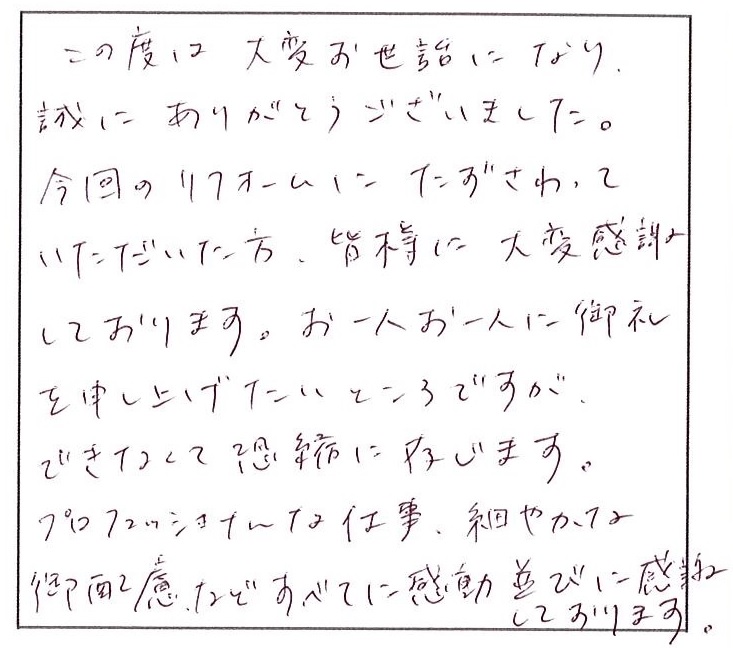 この度は大変お世話になり、
誠にありがとうございました。
今回のリフォームにたずさわって
いただいた方、皆様に大変感謝
しております。お一人お一人に御礼
を申し上げたいところですが、
できなくて恐縮に存じます。
プロフェッショナルな仕事、細やかな
御配慮、などすべてに感動並びに感謝
しております。